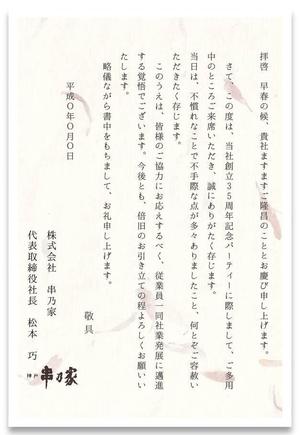 拝啓　早春の候、貴社ますますご隆昌のこととお慶び申し上げます。
さて、この度は、当社創立３５周年記念パーティーに際しまして、ご多用
中のところご来席いただき、誠にありがたく存じます。
当日は、不慣れなことで不手際な点が多々ありましたこと、何とぞご容赦い
ただきたく存じます。
このうえは、皆様のご協力にお応えするべく、従業員一同社業発展に邁進
する覚悟でございます。今後とも、倍旧のお引き立ての程よろしくお願いい
たします。
略儀ながら書中をもちまして、お礼申し上げます。
敬具
平成〇年〇月〇日
株式会社　串乃家
代表取締役社長　松本　巧
神戸 串乃家